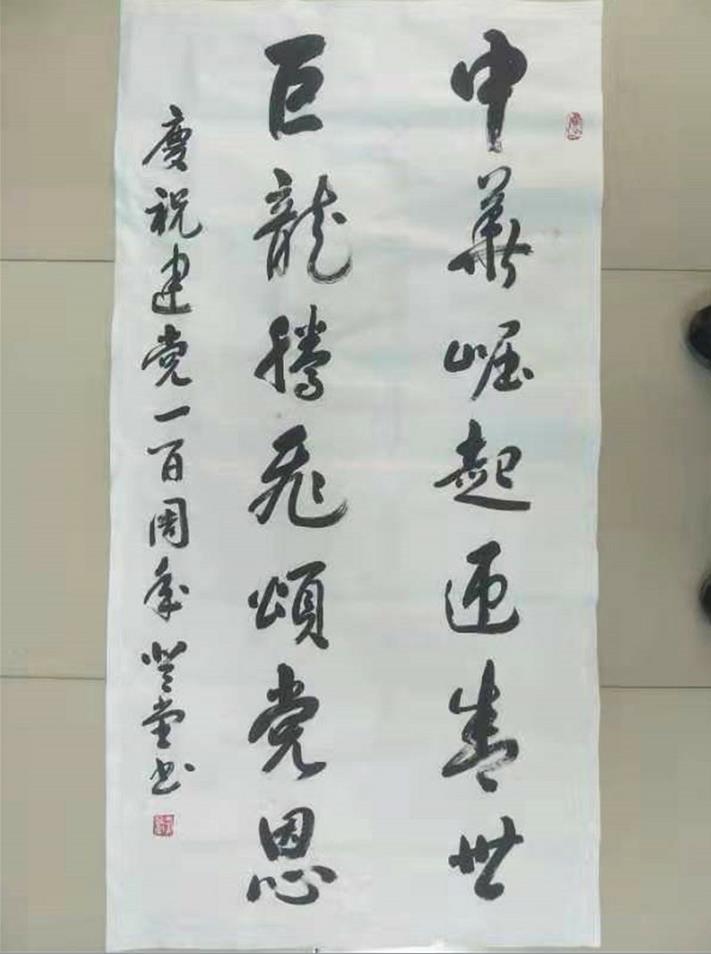 中華崛起迎盛世
巨龍騰飛頌党恩
慶祝建党一百周年 登堂书